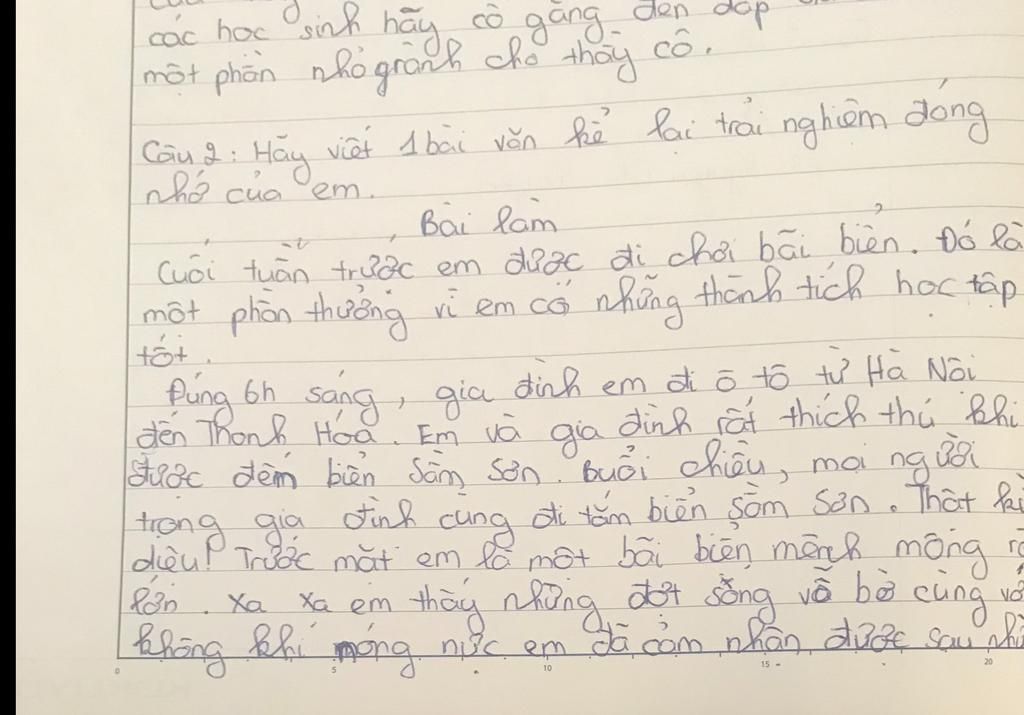 các học sinh hãy cố gắng đền đáp
một phần nhỏ giành cho thầy cô.
Câu 2: Hãy viết 1 bài văn kể lại trải nghiệm đáng
nhớ của em.
Bài làm
Cuối tuần trước em được đi chơi bãi biển. Đó là
một phần thưởng vì em có những thành tích học tập
tốt.
Đúng 6h sáng, gia đình em đi ô tô từ Hà Nội
đến Thanh Hóa. Em và gia đình rất thích thú khi
được đếm biển Sầm Sơn. Buổi chiều, mọi người
trong gia đình cùng đi tắm biển Sầm Sơn. Thật kì
diệu! Trước mắt em là một bãi biển mênh mông rộ
lớn. Xa xa em thấy những đợt sóng vỗ bờ cùng vớ
không khí nóng nực em đã cảm nhận được sau nhi
0 5 10 15 20